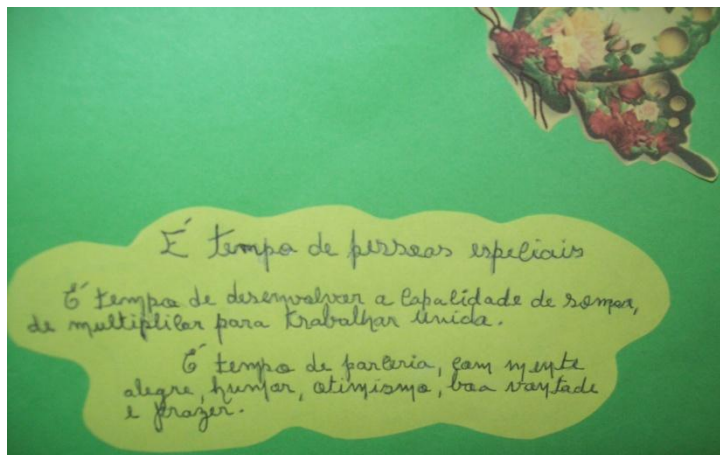 É tempo de pessoas especiais
É tempo de desenvolver a capacidade de somar,
de multiplicar para trabalhar unida.
É tempo de parceria, com mente
alegre, humor, otimismo, boa vontade
e prazer.